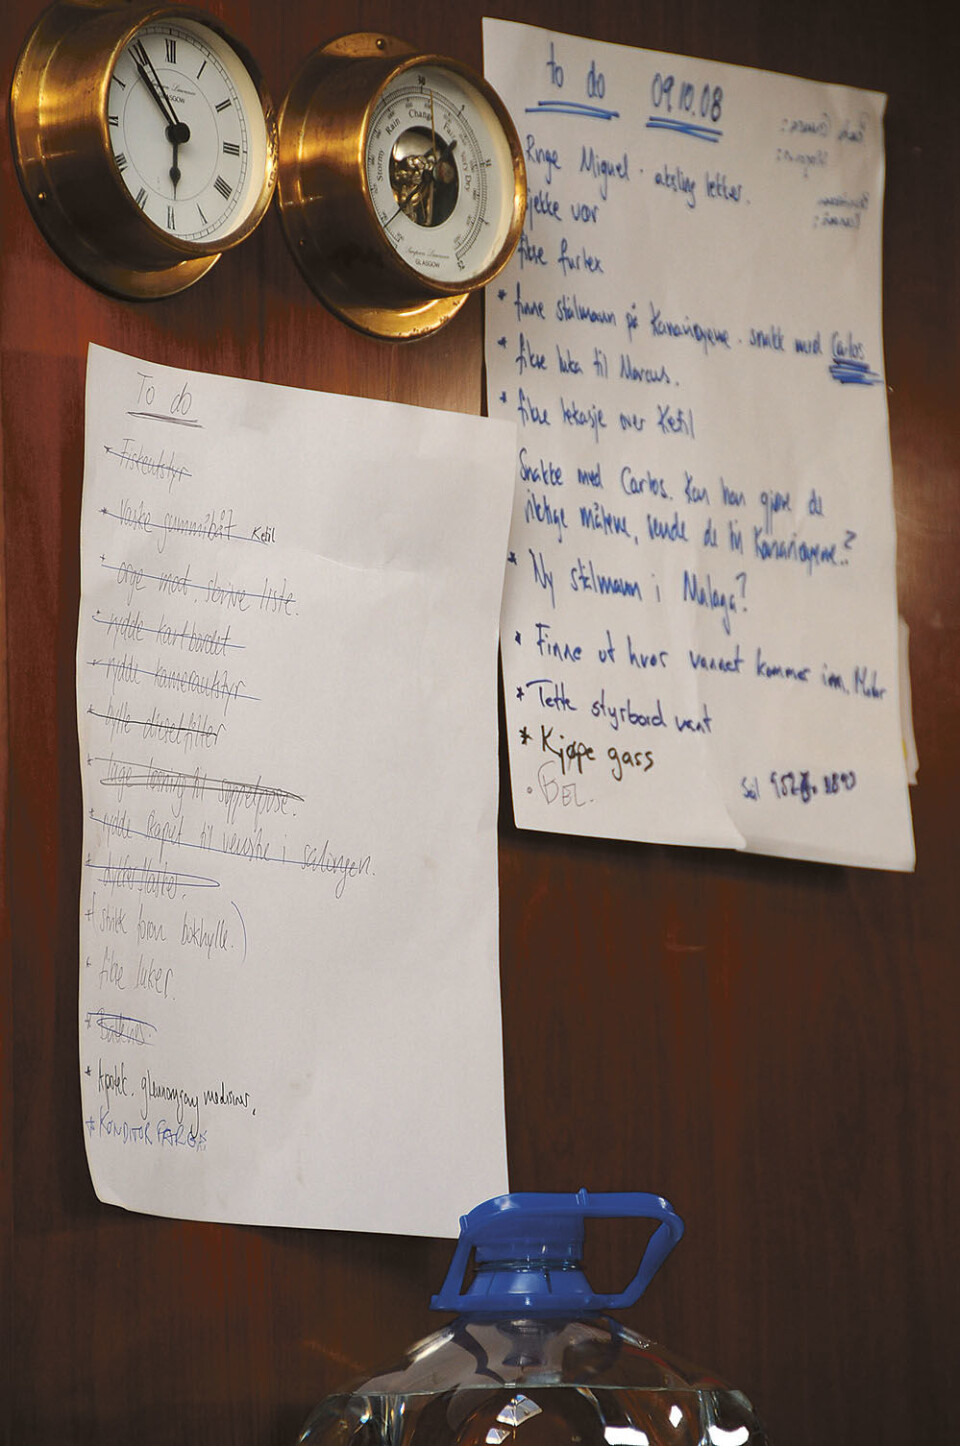 XII
I
II
III
IIII
V
VI
VII
VIII
IX
X
GLASGOW
Stormy Rain Change Fair Very Dry
GLASGOW
to do 09.10.08
Ringe Miguel.
fikse furlex
* finne stålmann på Kanariøyene. snakk med Carlos
* fikse luka til Marcus.
* fikse lekasje over Ketil
Snakke med Carlos. Kan han gjøre de
riktige målene, sende de til Kanariøyene?
* Ny stålmann i Malaga?
* Finne ut hvor vannet kommer inn. Motor
* Tette styrbord vant
* Kjøpe gass
To do
* Fiskeutstyr
* Vaske gummibåt Ketil
* mat. skrive liste.
* rydde kartbordet
* rydde kamerautstyr
* fylle dieselfilter
* lage løsning til søppelpose.
* rydde skapet til venstre i salongen.
* (strikk foran bokhylle.)
* fikse luker.
* Apotek.
* KONDITORFARGE